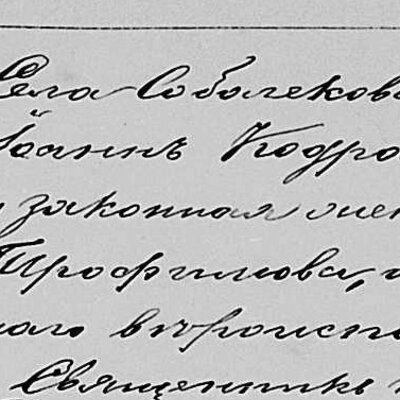 Села Соболеково
Іоаннъ Кодро
законная жен
Трофимова,
наго вѣроиспо
Священникъ